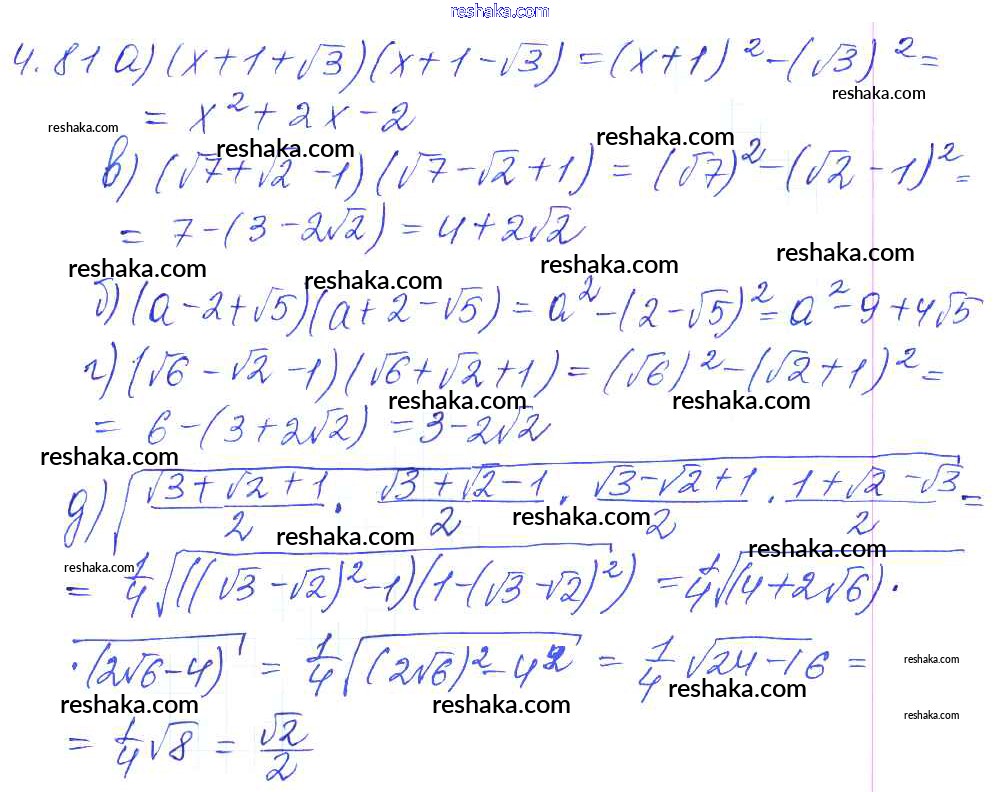 reshaka.com
4.81 а) (x+1+√3)(x+1-√3) = (x+1)² - (√3)² =
reshaka.com
= x² + 2x - 2
reshaka.com reshaka.com reshaka.com
в) (√7+√2 -1)(√7-√2+1) = (√7)² - (√2 -1)² =
= 7-(3-2√2) = 4+2√2
reshaka.com reshaka.com reshaka.com reshaka.com
б) (a-2+√5)(a+2-√5) = a² - (2-√5)² = a² - 9 + 4√5
г) (√6 - √2 -1)(√6+√2+1) = (√6)² - (√2+1)² =
reshaka.com reshaka.com
= 6-(3+2√2) = 3-2√2
reshaka.com
д) √((√3+√2+1)/2 · (√3+√2-1)/2 · (√3-√2+1)/2 · (1+√2-√3)/2) =
reshaka.com reshaka.com reshaka.com
= 1/4 √(((√3-√2)²-1)(1-(√3-√2)²)) = 1/4 √((4+2√6) ·
· (2√6-4)) = 1/4 √((2√6)² - 4²) = 1/4 √(24-16) =
reshaka.com reshaka.com reshaka.com reshaka.com
= 1/4 √8 = √2/2
reshaka.com